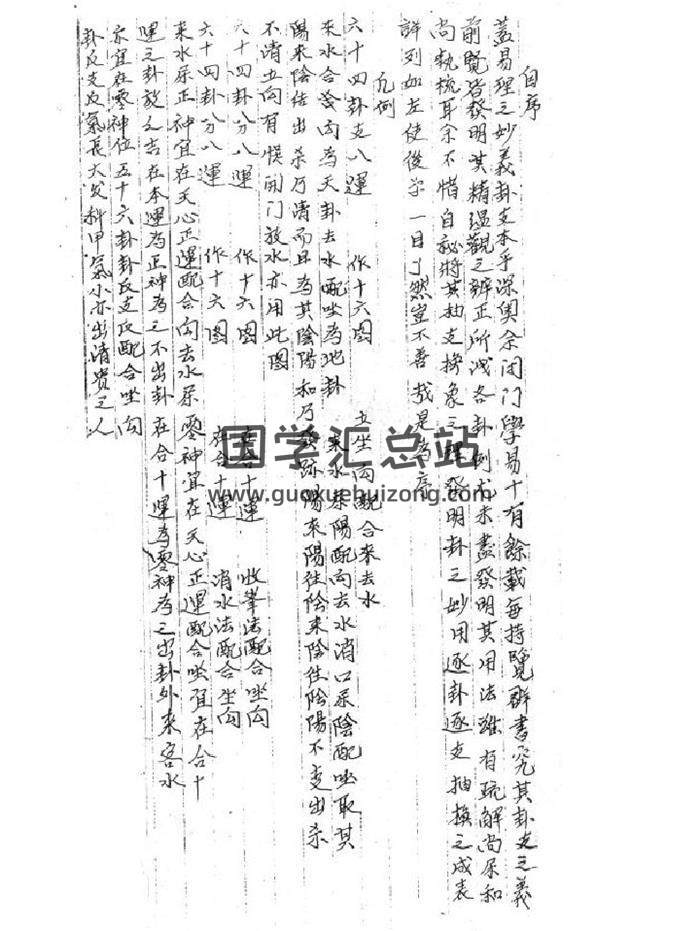 自序
蓋易理之妙義卦支本乎深奧余闭门學易十有餘載每持覽群書究其卦支之義
前覽皆發明其精蕴觀之辨正所浅各卦例尤未盡發明其用法雖有疏解尚屬和
尚執梳耳余不惜自秘將其抽支换象之理發明卦之妙用逐卦逐支抽换之成表
詳列如左使後学一目了然豈不善哉是為序
凡例
六十四卦支八運 作十六图 立坐向配合来去水
来水合發向為天卦去水配坐為地卦 来水屬陽配向去水消口屬陰配坐取其
陽来陰往出杀乃清而且為其陰陽和乃發跡陽来陽往陰来陰往陰陽不变出杀
不清立向有悮開门放水亦用此图
六十四卦八分八運 作十六图 在合十運 收峯法配合坐向
六十四卦八分八運 作十六图 在合十運 消水法配合坐向
来水屬正神宜在天心正運配合向去水屬零神宜在天心正運配合坐宜在合十
運之卦放之吉在本運為正神為之不出卦在合十運為零神為之出卦外来客水
亦宜在零神位五十六卦卦反支反配合坐向
卦反支反氣長大父科甲氣小亦出清贵之人
国学汇总站
www.guoxuehuizong.com